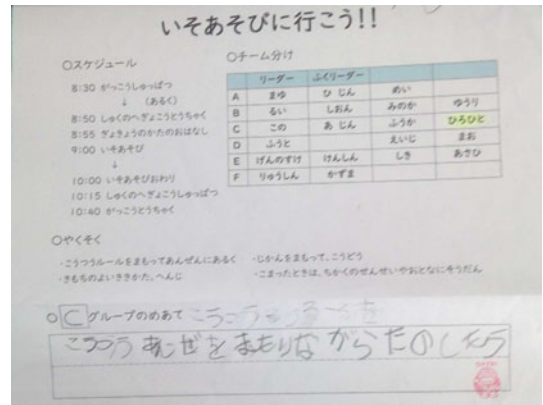 いそあそびに行こう!!
○スケジュール
8:30 がっこうしゅっぱつ
↓ (あるく)
8:50 しゅくのへぎょこうとうちゃく
8:55 ぎょきょうのかたのおはなし
9:00 いそあそび
↓
10:00 いそあそびおわり
10:15 しゅくのへぎょこうしゅっぱつ
10:40 がっこうとうちゃく
○チーム分け
リーダー ふくリーダー
A まゆ ひ じん めい
B るい しおん みのか ゆうり
C この あ じん ふうか ひろひと
D ふうと えいじ まお
E げんのすけ けんしん しき あさひ
F りゅうしん かずま
○やくそく
・こうつうルールをまもってあんぜんにあるく
・じかんをまもって、こうどう
・きもちのよいききかた、へんじ
・こまったときは、ちかくのせんせいやおとなにそうだん
○ C グループのめあて
こうつう あんぜをまもりながらたのしもう